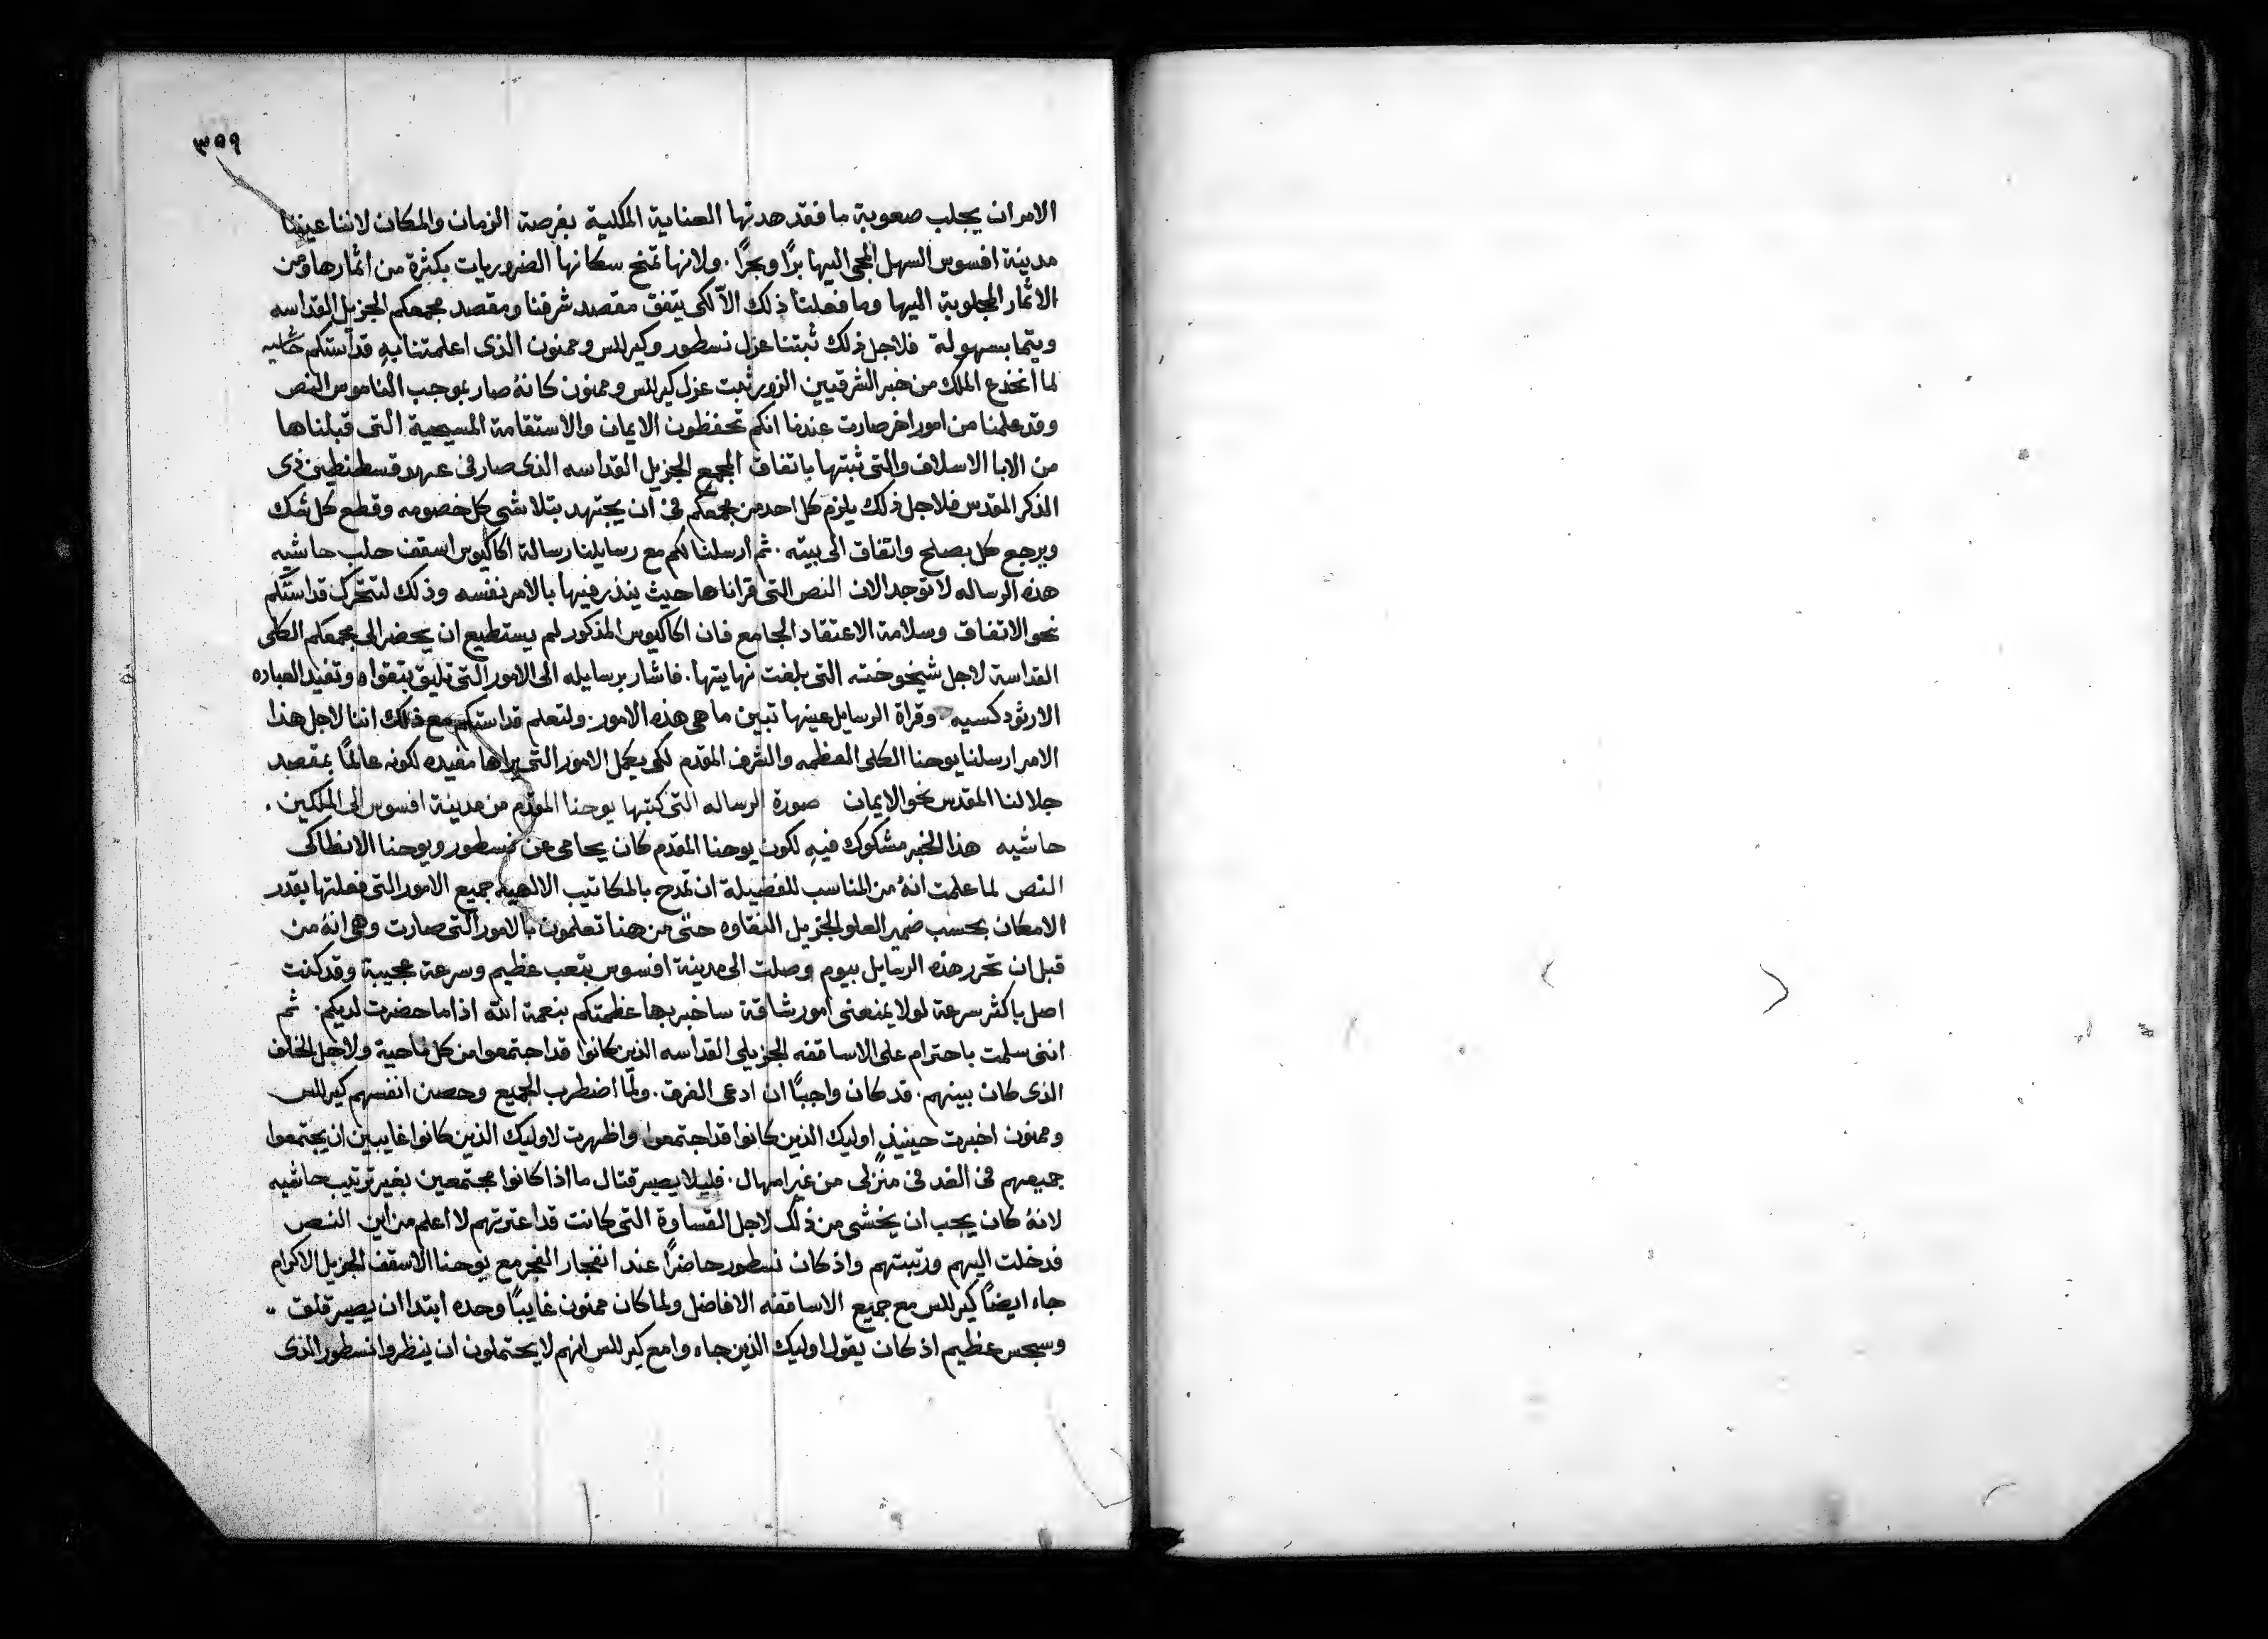 ٣٥٩
الامر ان يجلب صعوبة ما فقد هدتها العناية الملكية بفرصة الزمان والمكان لاننا عيننا
مدينة افسوس السهل المجى اليها برًا وبحرًا. ولانها تمنح سكانها الضروريات بكثرة من اثمارها ومن
الاثمار المجلوبة اليها وما فعلنا ذلك الّا لكى يتفق مقصد شرفنا ومقصد مجمعكم الجزيل القداسه
ويتما بسهولة فلاجل ذلك ثبتنا عزل نسطور وكيرللس وممنون الذى اعلمتنا بهِ قداستكم حاشيه
لما انخدع الملك من خبر الشرقيين الزور ثبت عزل كيرللس وممنون كانهُ صار بموجب الناموس النص
وقد علمنا من امور اخر صارت عندنا انكم تحفظون الايمان والاستقامة المسيحية التى قبلناها
من الابا الاسلاف والتى ثبتها باتفاق المجمع الجزيل القداسه الذى صار فى عهد قسطنطين ذى
الذكر المقدس فلاجل ذلك يلزم كل احد من مجمعكم فى ان يجتهد بتلاشى كل خصومه وقطع كل شك
ويرجع كل بصلح واتفاق الى بيته. ثم ارسلنا لكم مع رسايلنا رسالة اكاكيوس اسقف حلب حاشيه
هذه الرساله لا توجد الان النص التى قراناها حيث ينذر فيها بالامر نفسه وذلك لتتحرك قداستكم
نحو الاتفاق وسلامة الاعتقاد الجامع فان اكاكيوس المذكور لم يستطيع ان يحضر الى مجمعكم الكلى
القداسة لاجل شيخوخته التى بلغت نهايتها. فاشار برسايله الى الامور التى تليق بتقواه وتفيد العباده
الارثودكسيه. وقراة الرسايل عينها تبين ما هى هذه الامور. ولتعلم قداستكم مع ذلك اننا لاجل هذا
الامر ارسلنا يوحنا الكلى العظمه والشرف المقدم لكى يكمل الامور التى يراها مفيده لكونه عالمًا بمقصد
جلالنا المقدس نحو الايمان صورة الرساله التى كتبها يوحنا المقدم من مدينة افسوس الى الملكين.
حاشيه هذا الخبر مشكوك فيهِ لكون يوحنا المقدم كان يحامى عن نسطور ويوحنا الانطاكى
النص لما علمت انهُ من المناسب للفضيلة ان تمدح بالمكاتيب الالهيه جميع الامور التى فعلتها بقدر
الامكان بحسب ضمير العلو الجزيل النقاوه حتى من هنا تعلمون بالامور التى صارت وهى انهُ من
قبل ان تحرر هذه الرسايل بيوم وصلت الى مدينة افسوس بتعب عظيم وسرعة عجيبة وقد كنت
اصل باكثر سرعة لولا يمنعنى امور شاقة ساخبر بها عظمتكم بنعمة الله اذا ما حضرت لديكم. ثم
اننى سلمت باحترام على الاساقفه الجزيلى القداسه الذين كانوا قد اجتمعوا من كل ناحية ولاجل الخلف
الذى كان بينهم. قد كان واجبًا ان ادعى الفرق. ولمّا اضطرب الجميع وحصن انفسهم كيرللس
وممنون اخبرت حينيذٍ اوليك الذين كانوا قد اجتمعوا واظهرت لاوليك الذين كانوا غايبين ان يجتمعوا
جميعهم فى الغد فى منزلى من غير امهال. فليلا يصير قتال ما اذا كانوا مجتمعين بغير ترتيب حاشيه
لانهُ كان يجب ان يخشى من ذلك لاجل القساوة التى كانت قد اعترتهم لا اعلم من اين النص
فدخلت اليهم ورتبتهم واذ كان نسطور حاضرًا عند انفجار الفجر مع يوحنا الاسقف الجزيل الاكرام
جاء ايضًا كيرللس مع جميع الاساقفه الافاضل ولما كان ممنون غايبًا وحده ابتدا ان يصير قلق
وسجس عظيم اذ كان يقول اوليك الذين جاءوا مع كيرللس انهم لا يحتملون ان ينظروا نسطور الذى